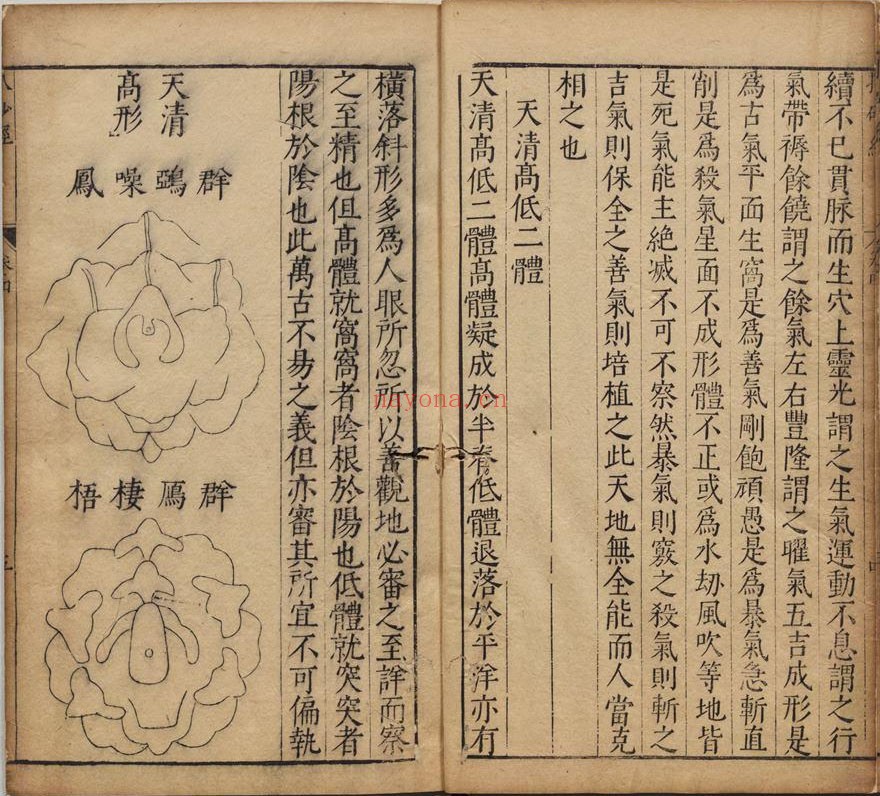 續不已貫脉而生穴上靈光謂之生氣運動不息謂之行
氣帶褥餘饒謂之餘氣左右豐隆謂之曜氣五吉成形是
為古氣平面生窩是為善氣剛飽頑愚是為暴氣急斬直
削是為殺氣星面不成形體不正或為水刼風吹等地皆
是死氣能主絶滅不可不察然暴氣則竅之殺氣則斬之
吉氣則保全之善氣則培植之此天地無全能而人當克
相之也
天清髙低二體
天清髙低二體髙體凝成於半脊低體退落於平洋亦有
橫落斜形多為人眼所忽所以善觀地必審之至詳而察
之至精也但髙體就窩窩者陰根於陽也低體就突突者
陽根於陰也此萬古不易之義但亦審其所宜不可偏執
天清
髙形
群鵶噪鳳
群鴈棲梧
nayona.cn